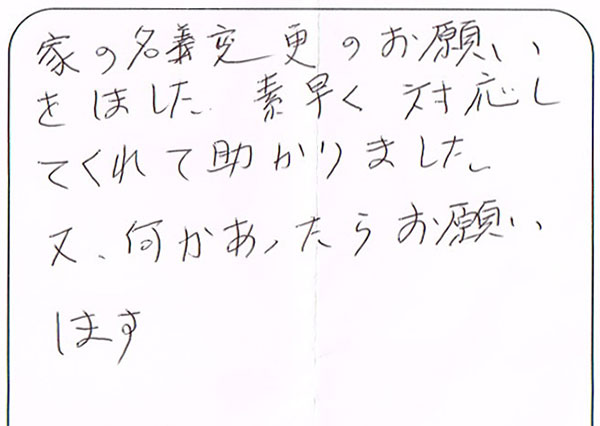 家の名義変更のお願い
をしました。素早く対応し
てくれて助かりました。
又、何かあったらお願い
します